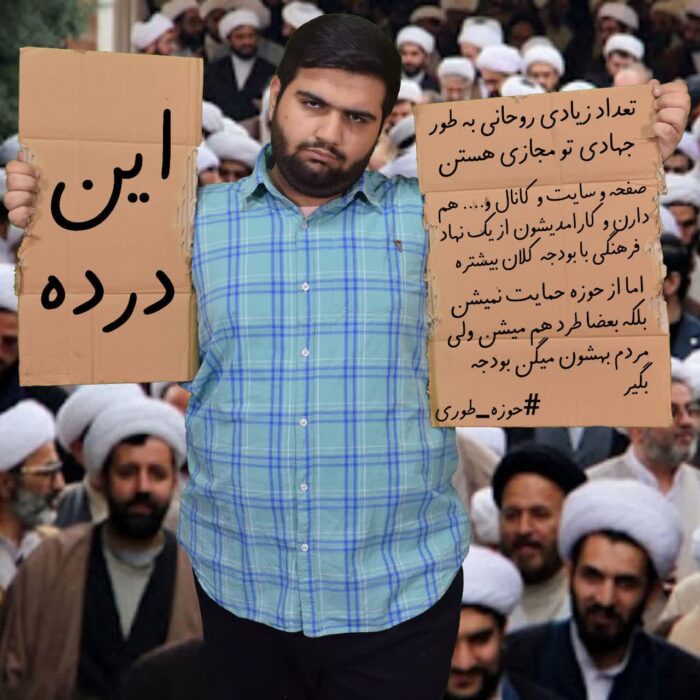 این
درده
تعداد زیادی روحانی به طور
جهادی تو مجازی هستن
صفحه و سایت و کانال و.... هم
دارن و کارامدیشون از یک نهاد
فرهنگی با بودجه کلان بیشتره
اما از حوزه حمایت نمیشن
بلکه بعضا طرد هم میشن ولی
مردم بهشون میگن بودجه
بگیر
#حوزه_طوری